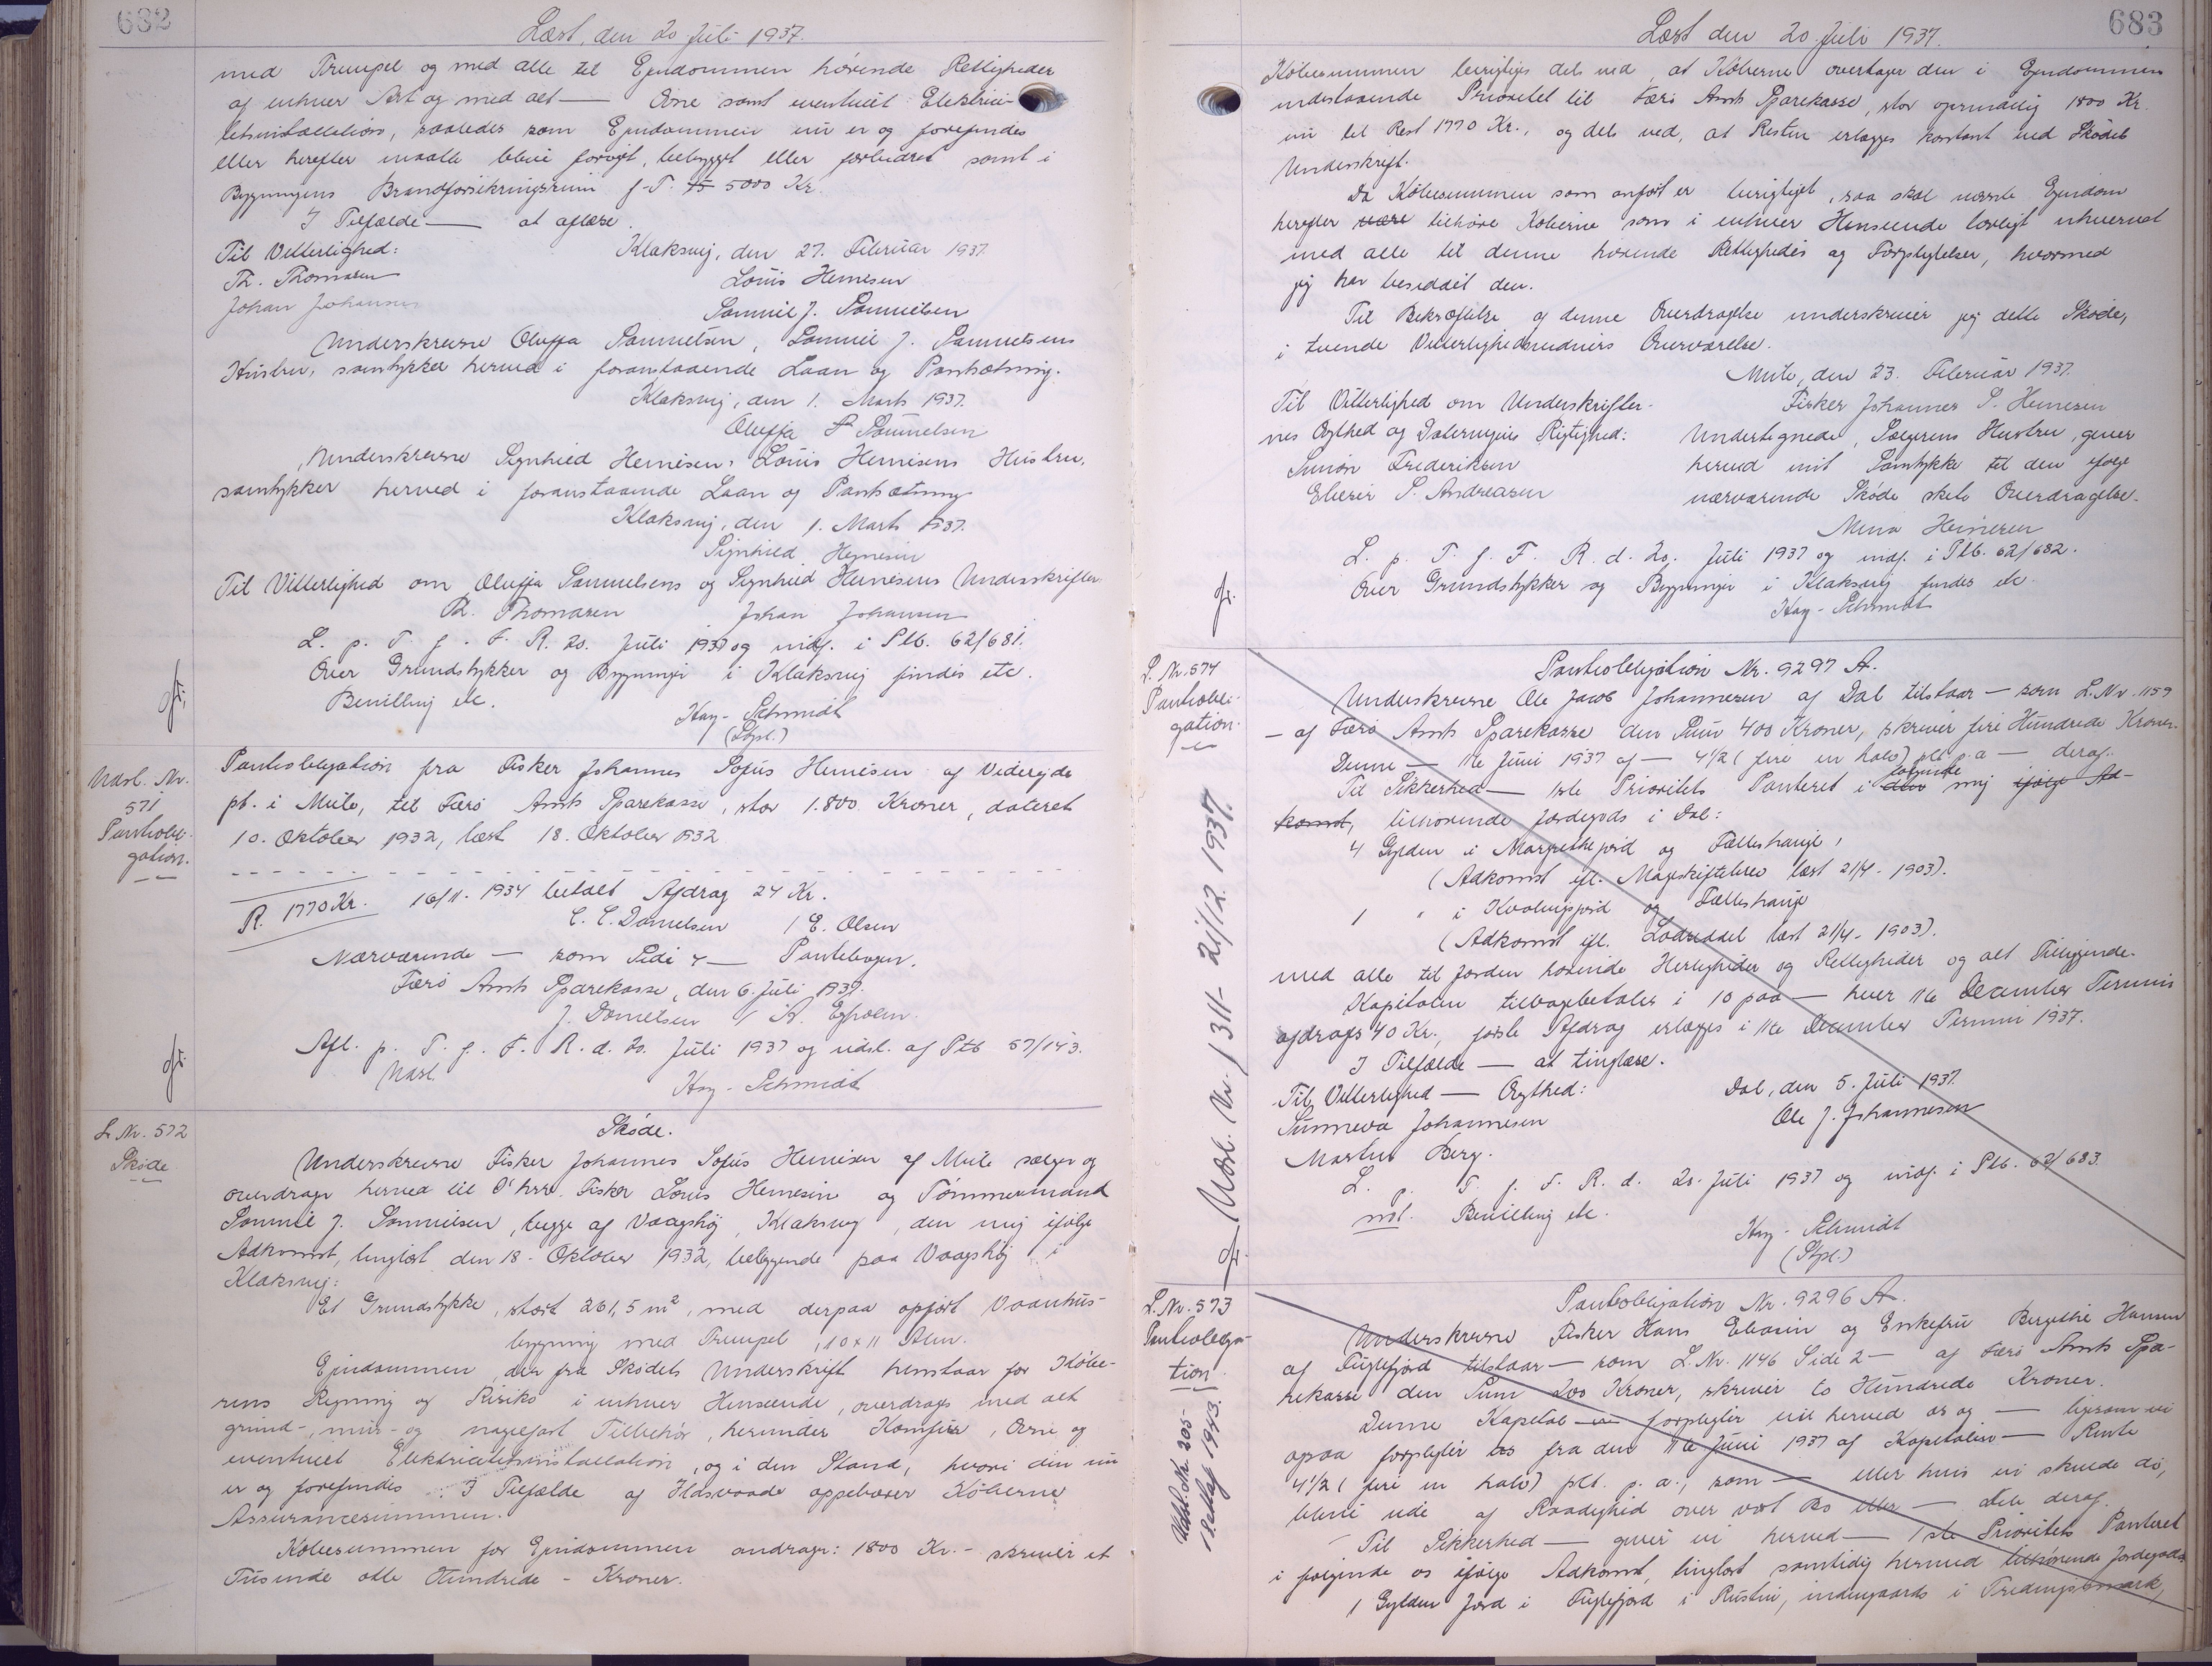 682
Læst, den 20 Juli 1937.
med Trempel og med alle til Ejendommen hørende Rettigheder
af enhver Art og med alt — Ovne samt eventuel Elektrici-
tetsinstallation, saaledes som Ejendommen nu er og forefindes
eller herefter maatte blive forøget, bebygget eller forbedret samt i
Bygningens Brandforsikringssum f. T. 5000 Kr.
I Tilfælde — at aflæse.
Til Vitterlighed:
Klaksvig, den 27. Februar 1937.
Th. Thomasen
Louis Heinesen
Johan Johansen
Samuel J. Samuelsen
Underskrevne Oluffa Samuelsen, Samuel J. Samuelsens
Hustru, samtykker herved i foranstaaende Laan og Pantsætning.
Klaksvig, den 1. Marts 1937.
Oluffa Samuelsen
Underskrevne Signhild Heinesen, Louis Heinesens Hustru,
samtykker herved i foranstaaende Laan og Pantsætning
Klaksvig, den 1. Marts 1937.
Signhild Heinesen
Til Vitterlighed om Oluffa Samuelsens og Signhild Heinesens Underskrifter
Th. Thomasen Johan Johansen
L. p. T. f. F. R. 20. Juli 1937 og indf. i Ptb. 62/681.
Over Grundstykker og Bygninger i Klaksvig findes etc.
Bevilling etc.
Kay-Schmidt
Udsl. Nr.
571
Pantobli-
gation.
Pantobligation fra Fisker Johannes Sofus Heinesen af Viderejde
pt. i Mule, til Færø Amts Sparekasse, stor 1.800 Kroner, dateret
10. Oktober 1932, læst 18. Oktober 1932
R. 1770 Kr. 16/11. 1934 betalt Afdrag 24 Kr.
C. C. Danielsen / E. Olsen
Nærværende — som Side 4 — Pantebogen.
Færø Amts Sparekasse, den 6. Juli 1937.
J. Danielsen / A. Egholm.
Afl. p. T. f. F. R. d. 20. Juli 1937 og udsl. af Ptb 57/143.
Udsl.
Kay-Schmidt
L. Nr. 572
Skøde
Skøde.
Underskrevne Fisker Johannes Sofus Heinesen af Mule sælger og
overdrager herved til D'hrr. Fisker Louis Heinesen og Tømmermand
Samuel J. Samuelsen, begge af Vaagshøj, Klaksvig, den mig ifølge
Adkomst, tinglæst den 18. Oktober 1932, beliggende paa Vaagshøj i
Klaksvig:
Et Grundstykke, stort 261,5 m², med derpaa opført Vaanhus-
bygning med Trempel, 10 x 11 Alen.
Ejendommen, der fra Skødets Underskrift henstaar for Købe-
rens Regning og Risiko i enhver Henseende, overdrages med alt
grund-, mur- og nagelfast Tilbehør, herunder Komfur, Ovne og
eventuel Elektricitetsinstallation, og i den Stand, hvori den nu
er og forefindes. I Tilfælde af Ildsvaade oppebærer Køberne
Assurancesummen.
Købesummen for Ejendommen andrager: 1800 Kr. - skriver et
Tusinde otte Hundrede - Kroner.
683
Læst den 20. Juli 1937.
Købesummen berigtiges dels ved, at Køberne overtager den i Ejendommen
indestaaende Prioritet til Færø Amts Sparekasse, stor oprindelig 1800 Kr.
nu til Rest 1770 Kr., og dels ved, at Resten erlægges kontant ved Skødets
Underskrift.
Da Købesummen som anført er berigtiget, saa skal nævnte Ejendom
herefter være tilhøre Køberne som i enhver Henseende lovligt erhvervet
med alle til denne hørende Rettigheder og Forpligtelser, hvormed
jeg har besiddet den.
Til Bekræftelse af denne Overdragelse underskriver jeg dette Skøde,
i tvende Vitterlighedsvidners Overværelse.
Mule, den 23. Februar 1937.
Til Vitterlighed om Underskrifter-
nes Ægthed og Dateringens Rigtighed:
Simon Frederiksen
Elieser S. Andreasen
Fisker Johannes S. Heinesen
Undertegnede, Sælgerens Hustru, giver
herved mit Samtykke til den ifølge
nærværende Skøde skete Overdragelse.
Mina Heinesen
L. p. T. f. F. R. d. 20. Juli 1937 og indf. i Ptb. 62/682.
Over Grundstykker og Bygninger i Klaksvig findes etc.
Kay-Schmidt
L. Nr. 574
Pantobli-
gation.
Udsl. Nr. 1311- 21/12 1937.
Pantobligation Nr. 9297 A.
Underskrevne Ole Jacob Johannesen af Dal tilstaar — som L. Nr. 1159
— af Færø Amts Sparekasse den Sum 400 Kroner, skriver fire Hundrede Kroner.
Denne — 11te Juni 1937 af — 4 1/2 (fire en halv) pCt p.a — deraf.
Til Sikkerhed — 1ste Prioritets Panteret i den følgende mig ifølge Ad-
komst, tilhørende Jordegods i Dal:
4 Gylden i Margrethejord og Fælleshauge,
(Adkomst ifl. Mageskiftebrev læst 21/4. 1903).
1 " i Fælleshauge
(Adkomst ifl. Lodseddel læst 21/4. 1903).
med alle til Jorden hørende Herligheder og Rettigheder og alt Tilliggende.
Kapitalen tilbagebetales i 10 paa — hver 11te December Termin
afdrages 40 Kr., første Afdrag erlægges i 11te December Termin 1937.
I Tilfælde — at tinglæse.
Til Vitterlighed — Ægthed:
Dal, den 5. Juli 1937.
Sunneva Johannesen
Ole J. Johannesen
Martin Berg.
L. p. T. f. F. R. d. 20. Juli 1937 og indf. i Ptb. 62/683.
Bevilling etc.
Kay-Schmidt
(Stpl.)
L. Nr. 573
Pantobliga-
tion
Udsl. Nr. 205-
1943.
Pantobligation Nr. 9296 A.
Underskrevne Fisker Hans Eliasen og Enkefru Bergithe Hansen
af Fuglefjord tilstaar — som L. Nr. 1146 Side 2 — af Færø Amts Spa-
rekasse den Sum 200 Kroner, skriver to Hundrede Kroner.
Denne Kapital — forpligter vi herved os og — ligesom vi
ogsaa forpligter os fra den 11te Juni 1937 af Kapitalen — Rente
4 1/2 (fire en halv) pCt. p. a., som — eller hvis vi skulde dø,
blive ude af Raadighed over vort Bo eller — Dele deraf.
Til Sikkerhed — giver vi herved — 1ste Prioritets Panteret
i følgende os ifølge Adkomst, tinglæst samtidig hermed tilhørende Jordegods
1 Gylden Jord i Fuglefjord i Rustin, indengaards i Tredingsmark,